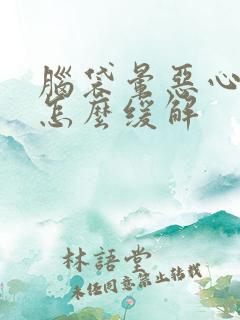 腦袋暈惡心
怎麼緩解
林語堂
未任同意禁止转載